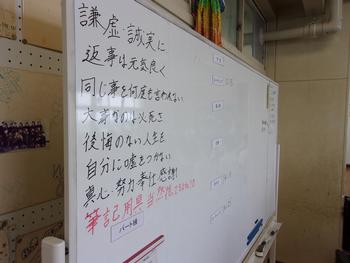 謙虚誠実に
返事は元気良く
同じ事を何度も言われない
大事なのは必死さ
後悔のない人生を
自分に嘘をつかない
真心・努力・奉仕・感謝
筆記用具当然
パート練